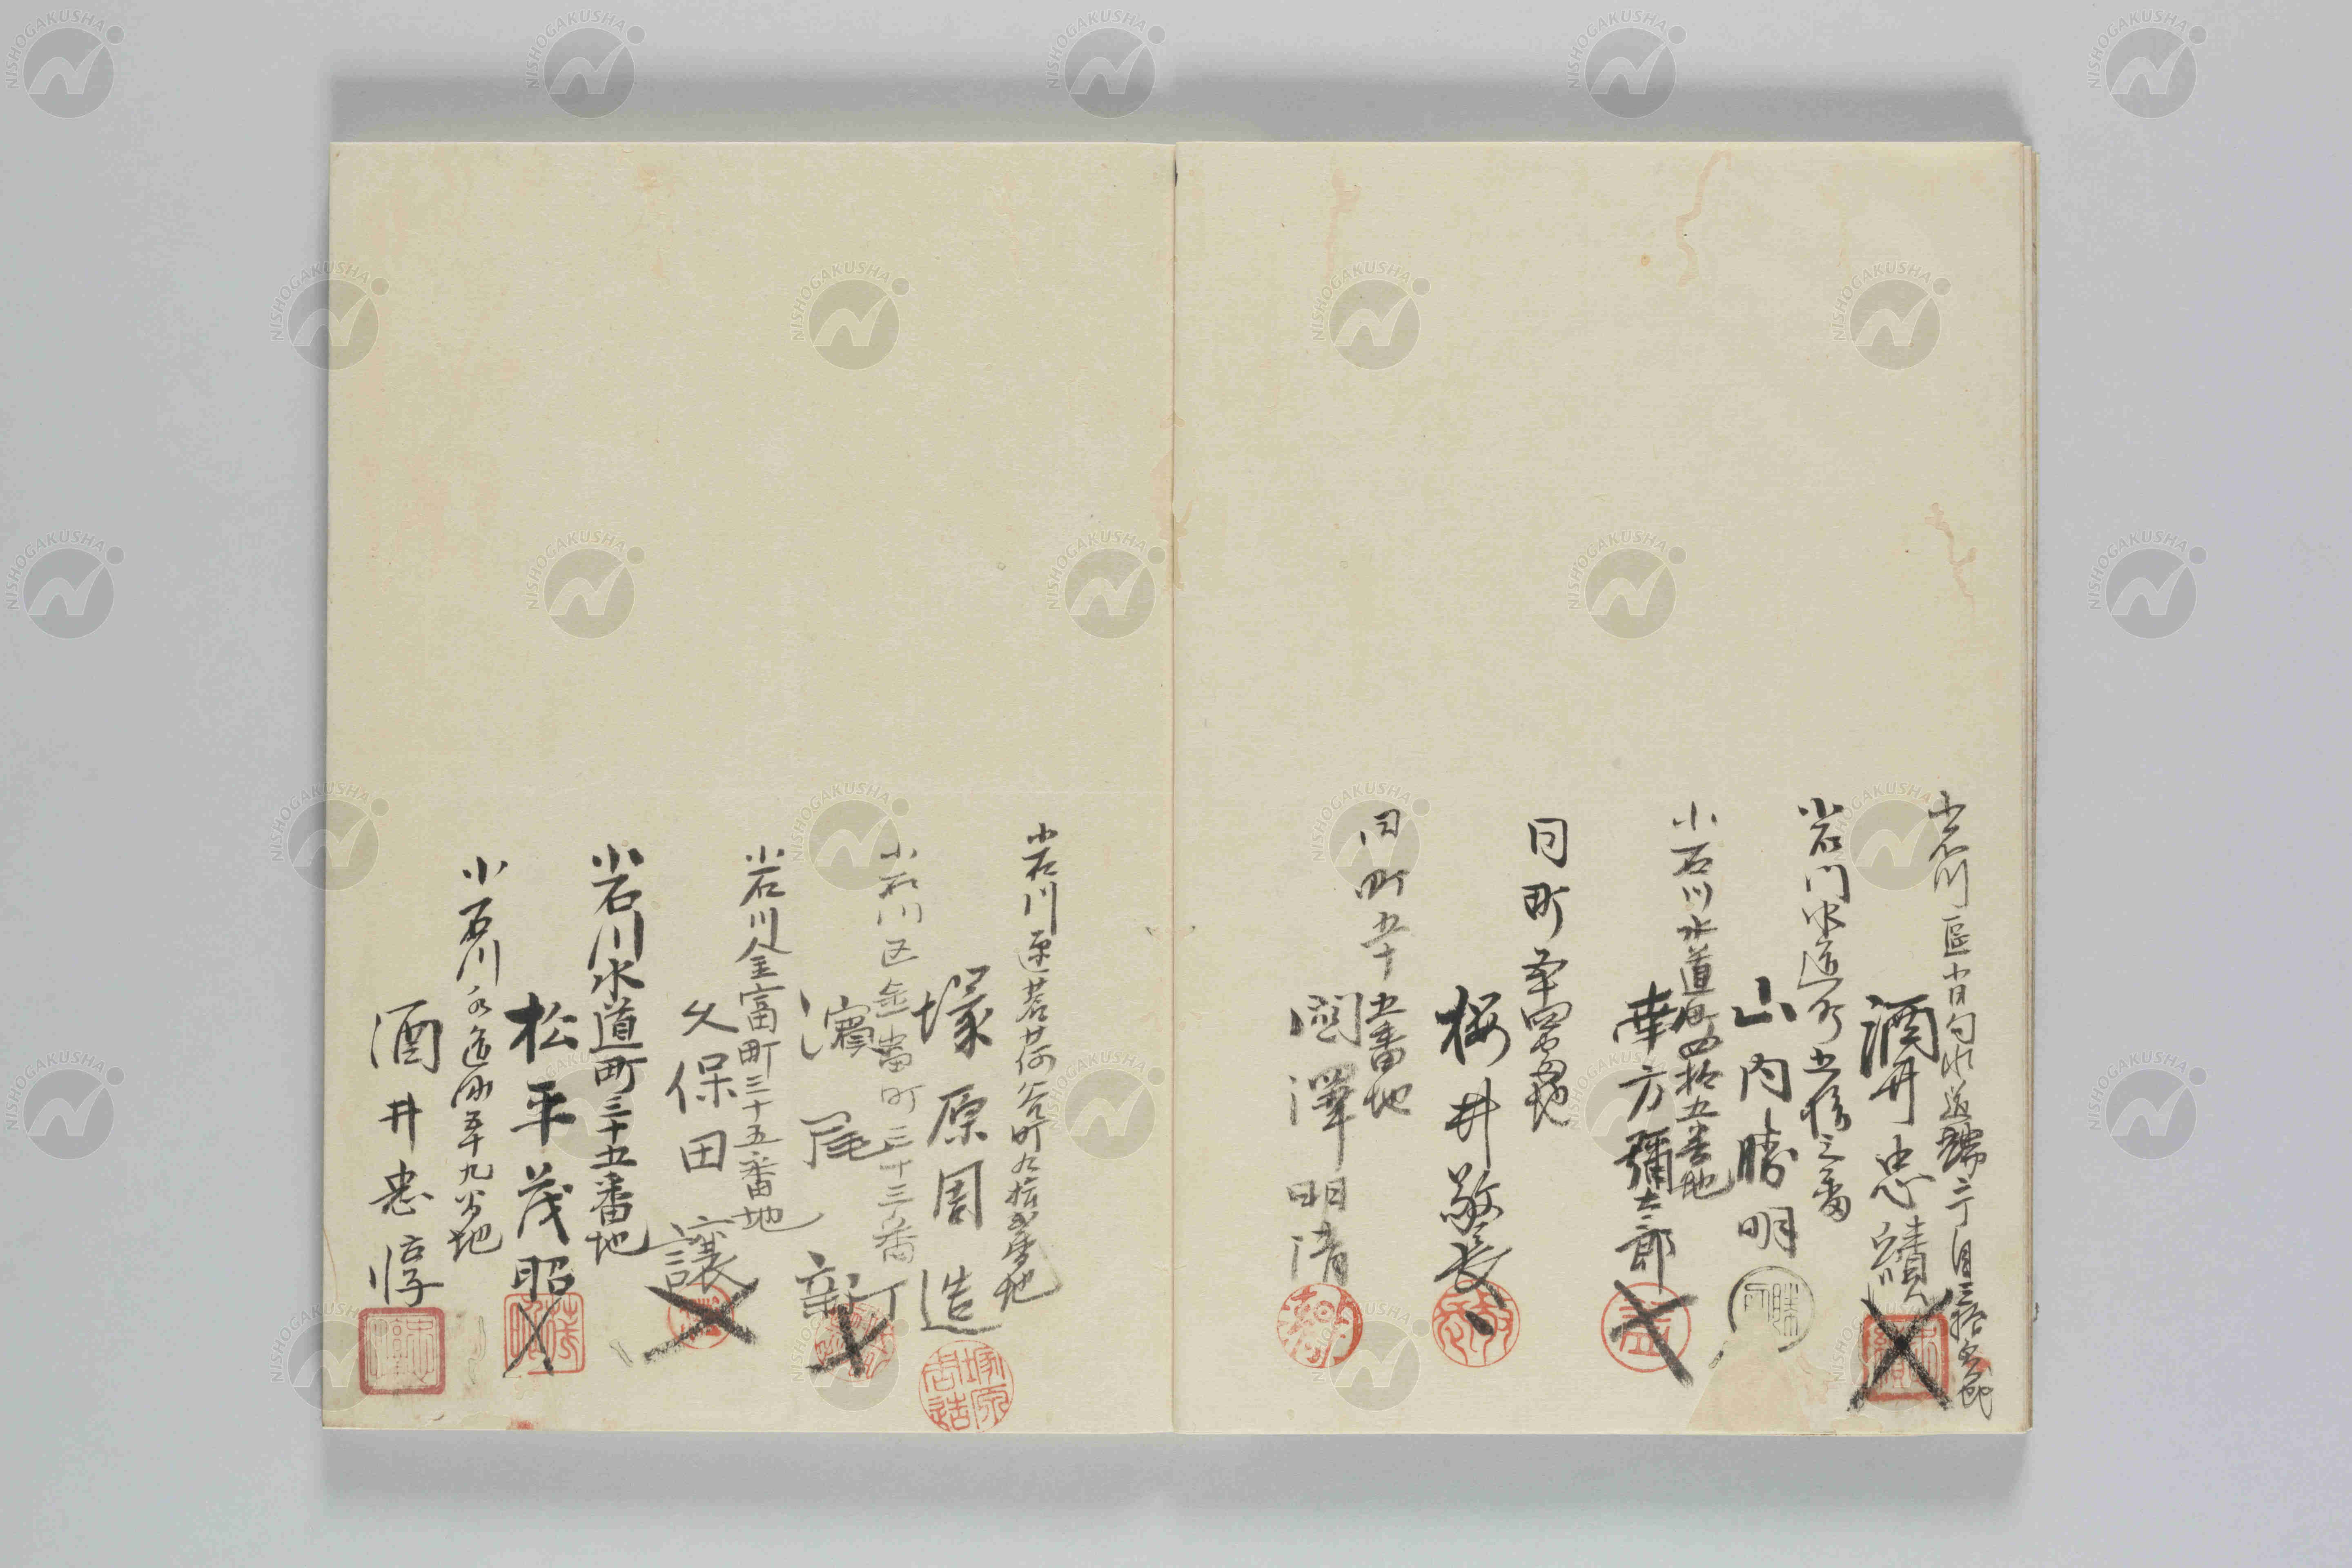 小石川區小日向水道端二丁目三拾五番地
酒井忠績
小石川水道町五拾三番
山内勝明
小石川水道町四拾五番地
幸方彌太郎
同町五十四番地
桜井敬長
同町五十五番地
関澤明清
小石川区茗荷谷町九拾弐番地
塚原周造
小石川区金富町三十三番
濵尾新
小石川金富町三十五番地
久保田譲
小石川水道町三十五番地
松平茂昭
小石川水道町五十九番地
酒井忠惇